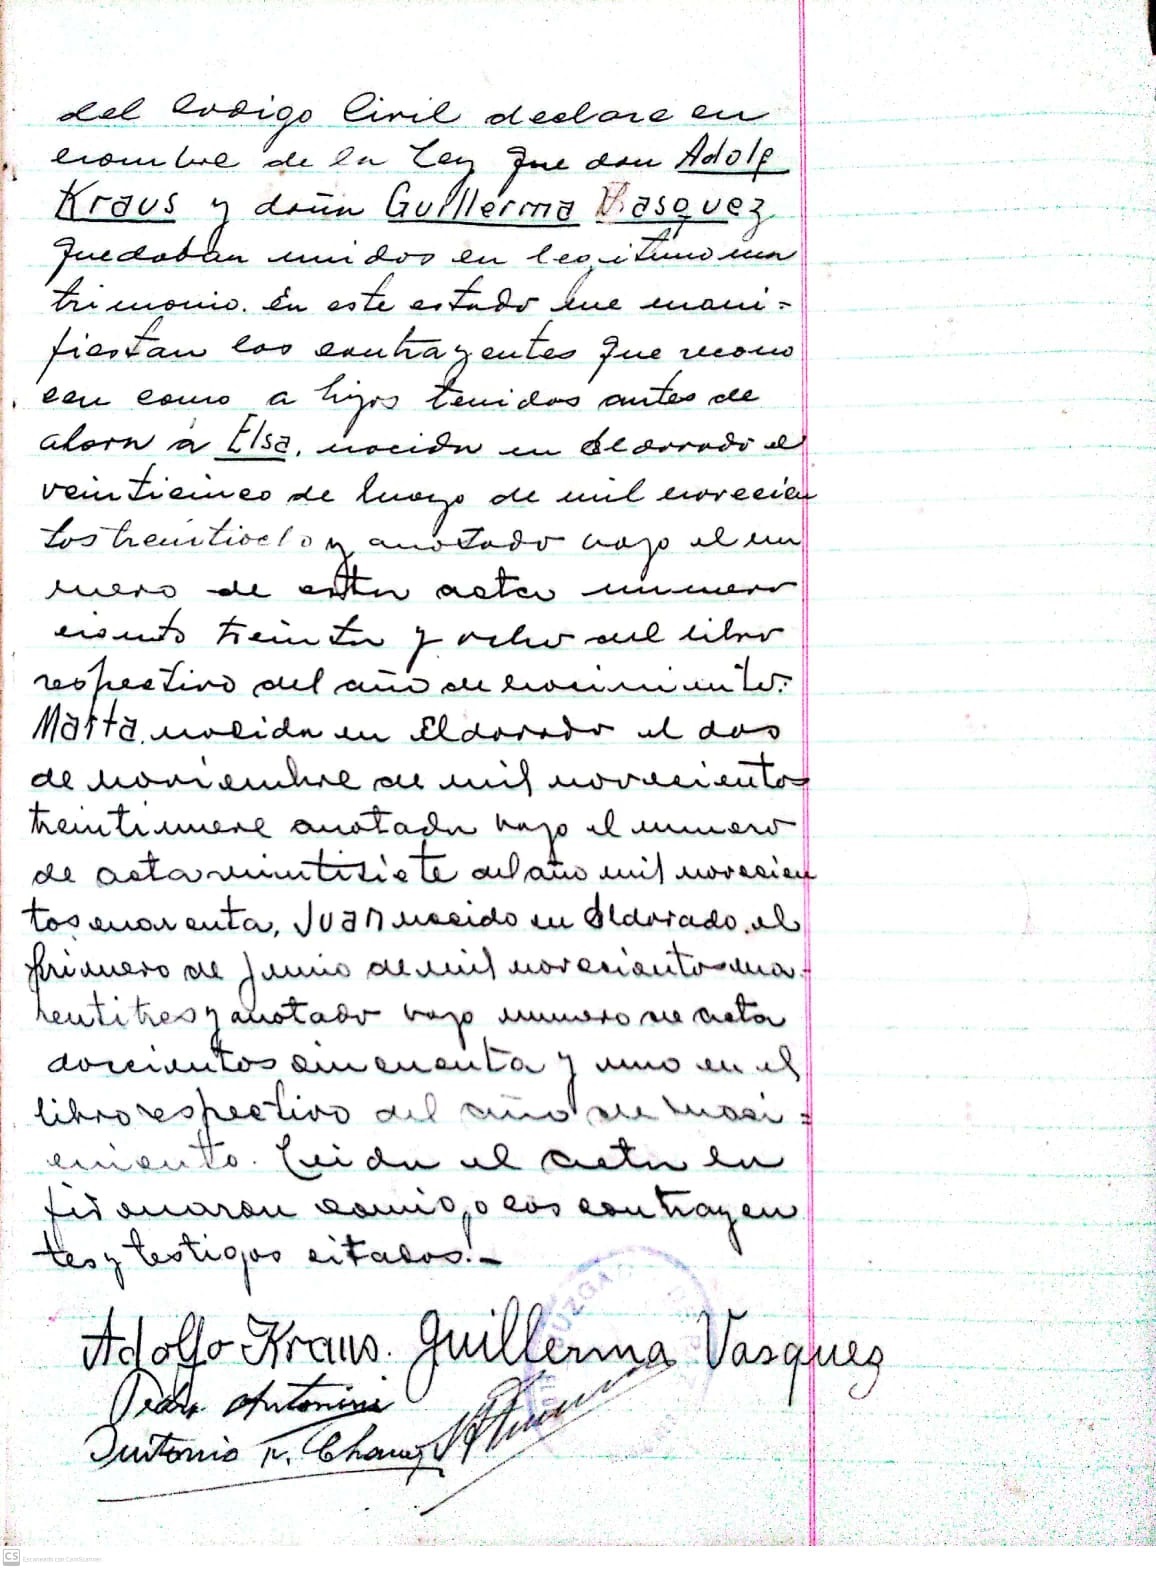 del Codigo Civil declare en
nombre de la Ley que don Adolf
Kraus y doña Guillerma Vasquez
quedaban unidos en legitimo ma
trimonio. En este estado me mani=
fiestan los contrayentes que recono
cen como a hijos tenidos antes de
ahora a Elsa, nacida en Eldorado el
veinticinco de mayo de mil novecien
tos treintiocho y anotado bajo el nu
mero de esta acta numero
ciento treinta y ocho del libro
respectivo del año de nacimiento:
Marta, nacida en Eldorado el dos
de noviembre de mil novecientos
treintinueve anotada bajo el numero
de acta veintisiete del año mil novecien
tos cuarenta, Juan nacido en Eldorado, el
primero de Junio de mil novecientos cua-
rentitres y anotado bajo numero de acta
doscientos cincuenta y uno en el
libro respectivo del año de naci=
miento. Leida el acta la
firmaron conmigo los contrayen
tes y testigos citados.-
Adolfo Kraus. Guillerma Vasquez
Pedro Antonini
Antonio F. Chavez
JUZGADO
CS Escaneado con CamScanner